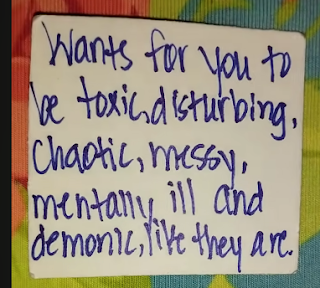 Wants for you to
be toxic,disturbing,
Chaotic, messy,
mentally ill and
demonic, like they are.